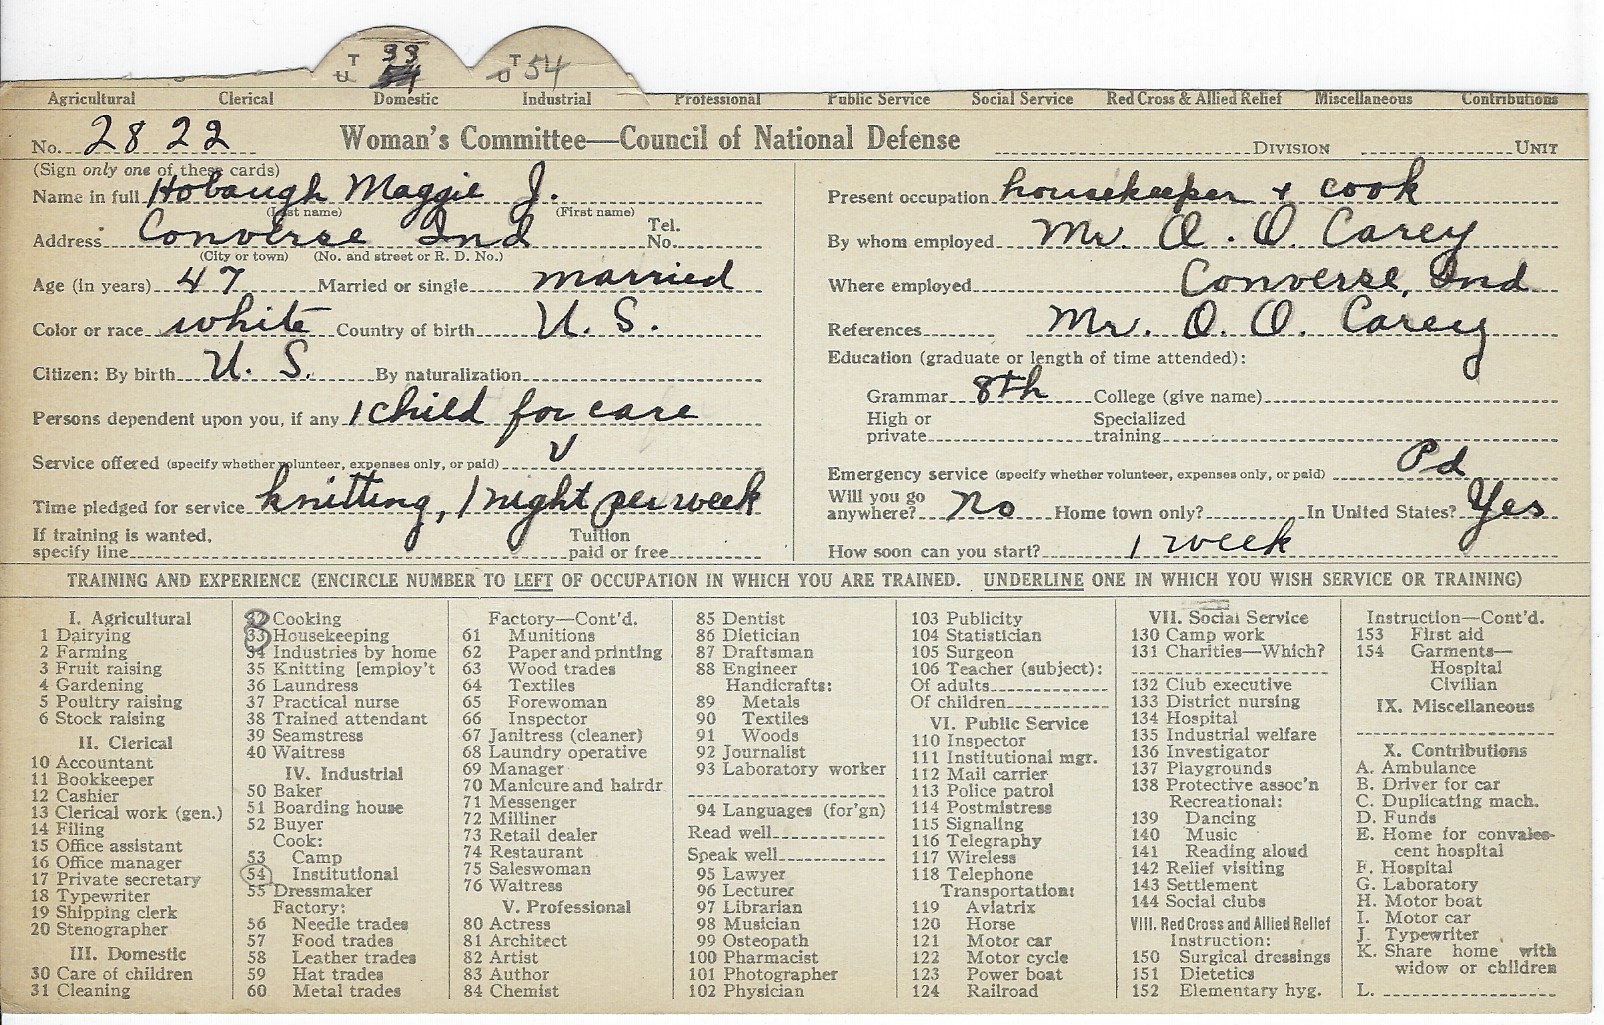 T 33 T 54
U U
Agricultural Clerical Domestic Industrial Professional Public Service Social Service Red Cross & Allied Relief Miscellaneous Contributions
No. 2822 Woman's Committee—Council of National Defense DIVISION UNIT
(Sign only one of these cards)
Name in full Hobaugh Maggie J.
(Last name) (First name)
Address Converse Ind Tel. No.
(City or town) (No. and street or R. D. No.)
Age (in years) 47 Married or single married
Color or race white Country of birth U. S.
Citizen: By birth U. S. By naturalization
Persons dependent upon you, if any 1 child for care
Service offered (specify whether volunteer, expenses only, or paid) V
Time pledged for service knitting, 1 night per week
If training is wanted, specify line Tuition paid or free
Present occupation housekeeper + cook
By whom employed Mr. O. O. Carey
Where employed Converse, Ind
References Mr. O. O. Carey
Education (graduate or length of time attended):
Grammar 8th College (give name)
High or private Specialized training
Emergency service (specify whether volunteer, expenses only, or paid) Pd
Will you go anywhere? No Home town only? In United States? Yes
How soon can you start? 1 week
TRAINING AND EXPERIENCE (ENCIRCLE NUMBER TO LEFT OF OCCUPATION IN WHICH YOU ARE TRAINED. UNDERLINE ONE IN WHICH YOU WISH SERVICE OR TRAINING)
I. Agricultural
1 Dairying
2 Farming
3 Fruit raising
4 Gardening
5 Poultry raising
6 Stock raising
II. Clerical
10 Accountant
11 Bookkeeper
12 Cashier
13 Clerical work (gen.)
14 Filing
15 Office assistant
16 Office manager
17 Private secretary
18 Typewriter
19 Shipping clerk
20 Stenographer
III. Domestic
30 Care of children
31 Cleaning
32 Cooking
33 Housekeeping
34 Industries by home
35 Knitting [employ't
36 Laundress
37 Practical nurse
38 Trained attendant
39 Seamstress
40 Waitress
IV. Industrial
50 Baker
51 Boarding house
52 Buyer
Cook:
53 Camp
54 Institutional
55 Dressmaker
Factory:
56 Needle trades
57 Food trades
58 Leather trades
59 Hat trades
60 Metal trades
Factory—Cont'd.
61 Munitions
62 Paper and printing
63 Wood trades
64 Textiles
65 Forewoman
66 Inspector
67 Janitress (cleaner)
68 Laundry operative
69 Manager
70 Manicure and hairdr
71 Messenger
72 Milliner
73 Retail dealer
74 Restaurant
75 Saleswoman
76 Waitress
V. Professional
80 Actress
81 Architect
82 Artist
83 Author
84 Chemist
85 Dentist
86 Dietician
87 Draftsman
88 Engineer
Handicrafts:
89 Metals
90 Textiles
91 Woods
92 Journalist
93 Laboratory worker
94 Languages (for'gn)
Read well
Speak well
95 Lawyer
96 Lecturer
97 Librarian
98 Musician
99 Osteopath
100 Pharmacist
101 Photographer
102 Physician
103 Publicity
104 Statistician
105 Surgeon
106 Teacher (subject):
Of adults
Of children
VI. Public Service
110 Inspector
111 Institutional mgr.
112 Mail carrier
113 Police patrol
114 Postmistress
115 Signaling
116 Telegraphy
117 Wireless
118 Telephone
Transportation:
119 Aviatrix
120 Horse
121 Motor car
122 Motor cycle
123 Power boat
124 Railroad
VII. Social Service
130 Camp work
131 Charities—Which?
132 Club executive
133 District nursing
134 Hospital
135 Industrial welfare
136 Investigator
137 Playgrounds
138 Protective assoc'n
Recreational:
139 Dancing
140 Music
141 Reading aloud
142 Relief visiting
143 Settlement
144 Social clubs
VIII. Red Cross and Allied Relief
Instruction:
150 Surgical dressings
151 Dietetics
152 Elementary hyg.
Instruction—Cont'd.
153 First aid
154 Garments—
Hospital
Civilian
IX. Miscellaneous
X. Contributions
A. Ambulance
B. Driver for car
C. Duplicating mach.
D. Funds
E. Home for convales-
cent hospital
F. Hospital
G. Laboratory
H. Motor boat
I. Motor car
J. Typewriter
K. Share home with
widow or children
L.